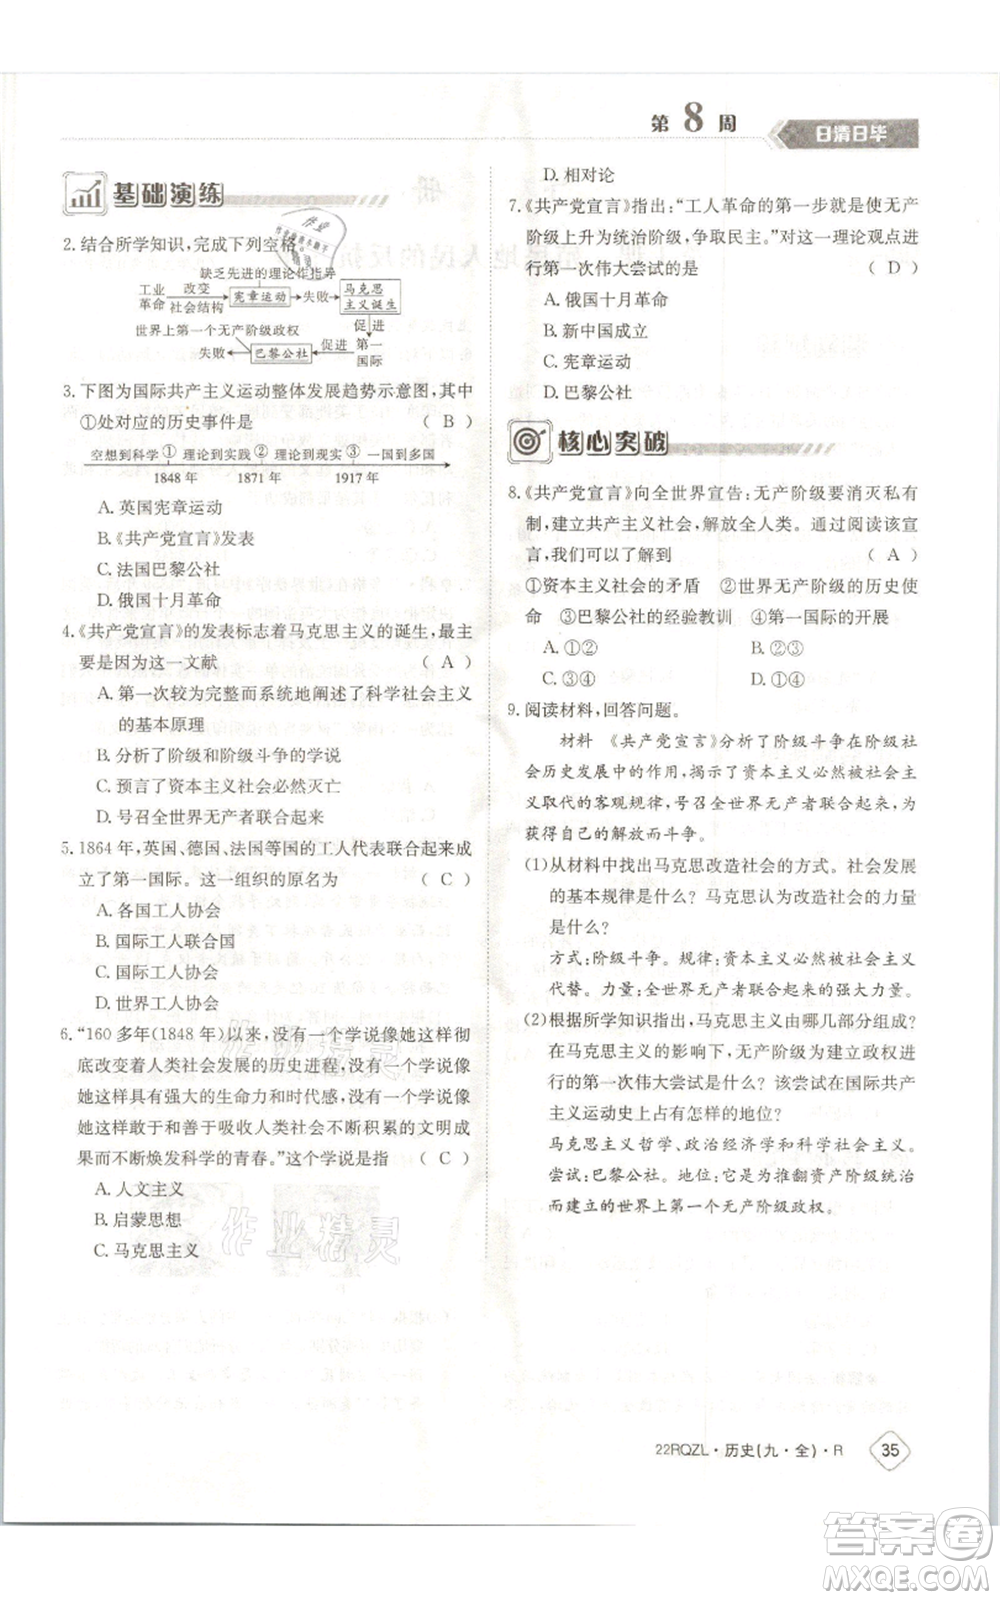 第8周
日清日毕
基础演练
2. 结合所学知识,完成下列空格。
缺乏先进的理论作指导
工业革命 改变 社会结构 宪章运动 失败 马克思主义诞生
促进
世界上第一个无产阶级政权
失败 巴黎公社 促进 第一国际
3. 下图为国际共产主义运动整体发展趋势示意图,其中
①处对应的历史事件是 ( B )
空想到科学 ① 理论到实践 ② 理论到现实 ③ 一国到多国
1848 年 1871 年 1917 年
A. 英国宪章运动
B.《共产党宣言》发表
C. 法国巴黎公社
D. 俄国十月革命
4.《共产党宣言》的发表标志着马克思主义的诞生,最主
要是因为这一文献 ( A )
A. 第一次较为完整而系统地阐述了科学社会主义
的基本原理
B. 分析了阶级和阶级斗争的学说
C. 预言了资本主义社会必然灭亡
D. 号召全世界无产者联合起来
5. 1864 年,英国、德国、法国等国的工人代表联合起来成
立了第一国际。这一组织的原名为 ( C )
A. 各国工人协会
B. 国际工人联合国
C. 国际工人协会
D. 世界工人协会
6. “160 多年(1848 年)以来,没有一个学说像她这样彻
底改变着人类社会发展的历史进程,没有一个学说像
她这样具有强大的生命力和时代感,没有一个学说像
她这样敢于和善于吸收人类社会不断积累的文明成
果而不断焕发科学的青春。”这个学说是指 ( C )
A. 人文主义
B. 启蒙思想
C. 马克思主义
D. 相对论
7.《共产党宣言》指出:“工人革命的第一步就是使无产
阶级上升为统治阶级,争取民主。”对这一理论观点进
行第一次伟大尝试的是 ( D )
A. 俄国十月革命
B. 新中国成立
C. 宪章运动
D. 巴黎公社
核心突破
8.《共产党宣言》向全世界宣告:无产阶级要消灭私有
制,建立共产主义社会,解放全人类。通过阅读该宣
言,我们可以了解到 ( A )
①资本主义社会的矛盾 ②世界无产阶级的历史使
命 ③巴黎公社的经验教训 ④第一国际的开展
A. ①② B. ②③
C. ③④ D. ①④
9. 阅读材料,回答问题。
材料 《共产党宣言》分析了阶级斗争在阶级社
会历史发展中的作用,揭示了资本主义必然被社会主
义取代的客观规律,号召全世界无产者联合起来,为
获得自己的解放而斗争。
(1)从材料中找出马克思改造社会的方式。社会发展
的基本规律是什么?马克思认为改造社会的力量
是什么?
方式:阶级斗争。规律:资本主义必然被社会主义
代替。力量:全世界无产者联合起来。
(2)根据所学知识指出,马克思主义由哪几部分组成?
在马克思主义的影响下,无产阶级建立政权进
行的第一次伟大尝试是什么?该尝试在国际共产
主义运动史上占有怎样的地位?
马克思主义哲学、政治经济学和科学社会主义。
尝试:巴黎公社。地位:是为推翻资产阶级统治
而建立的世界上第一个无产阶级政权。
作业精灵
作业精灵
22RQZL·历史(九·全)·R
35
答案卷
MXQE.COM